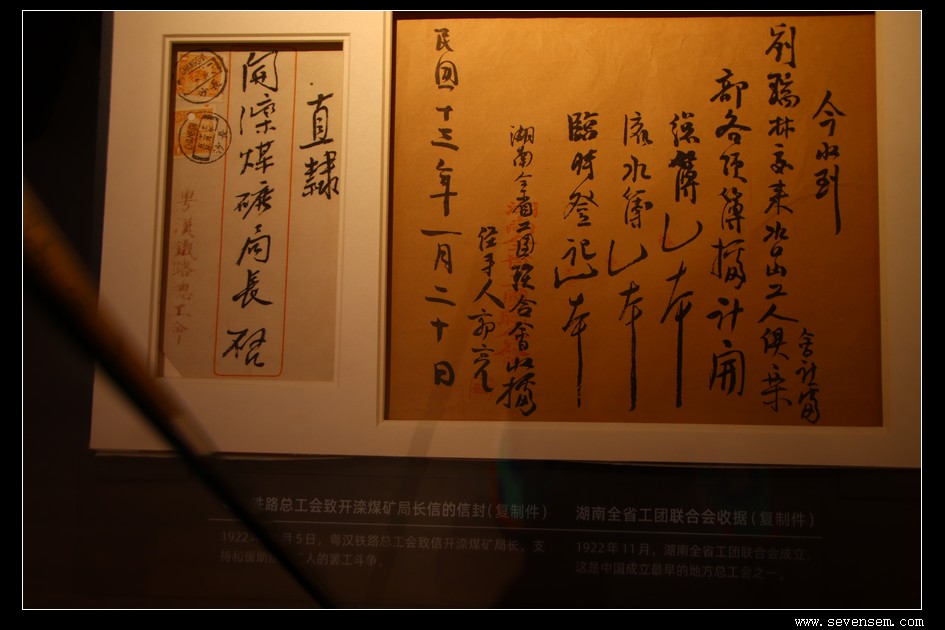 直隸
開灤煤礦局長 啓
今收到
劉瑞林交来水口山工人俱樂
部各項簿據計開
總簿乚本
流水簿乚本
臨時登記乚本
湖南全省工團聯合會收據
經手人郭亮
民囯十三年一月二十日
路总工会致开滦煤矿局长信的信封（复制件）
1922年 月5日，粤汉铁路总工会致信开滦煤矿局长，支
持和援助 人的罢工斗争。
湖南全省工团联合会收据（复制件）
1922年11月，湖南全省工团联合会成立。
这是中国成立最早的地方总工会之一。
www.sevensem.com